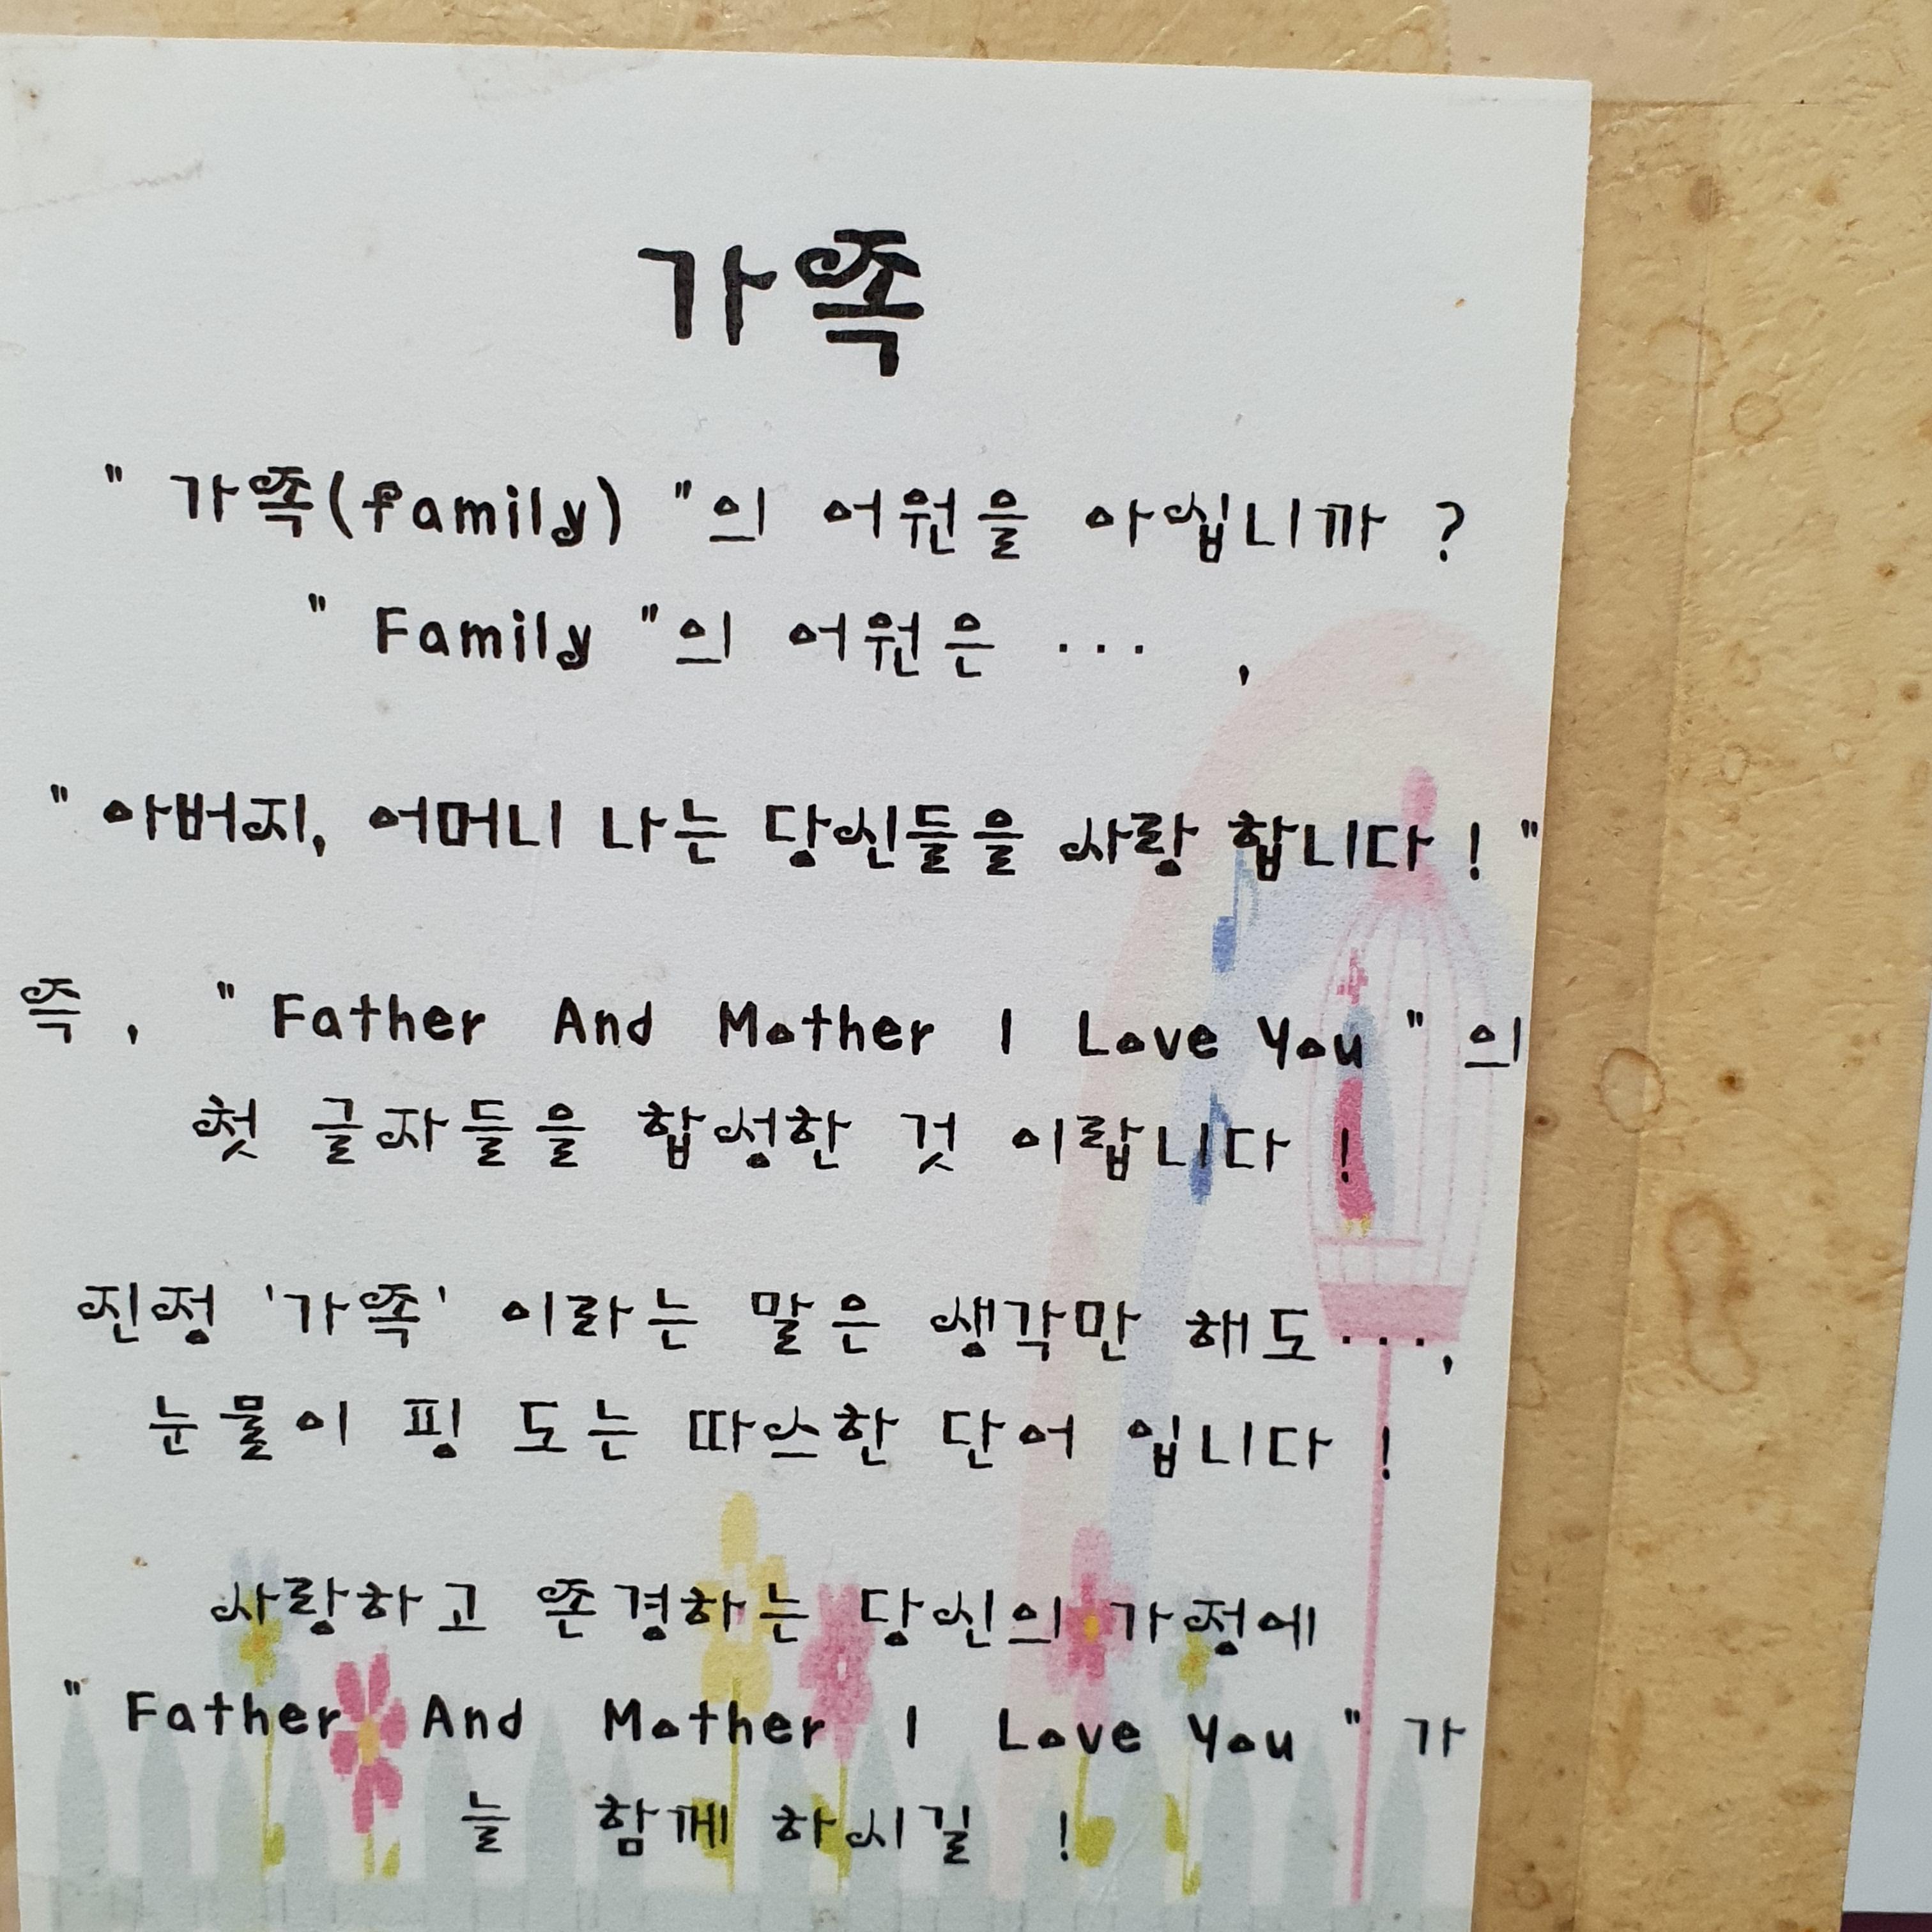 가족
" 가족(family) "의 어원을 아십니까 ?
" Family "의 어원은 ··· ,
" 아버지, 어머니 나는 당신들을 사랑 합니다 ! "
즉 , " Father And Mother I Love You " 의
첫 글자들을 합성한 것 이랍니다 !
진정 '가족' 이라는 말은 생각만 해도···,
눈물이 핑 도는 따스한 단어 입니다 !
사랑하고 존경하는 당신의 가정에
" Father And Mother I Love You " 가
늘 함께 하시길 !